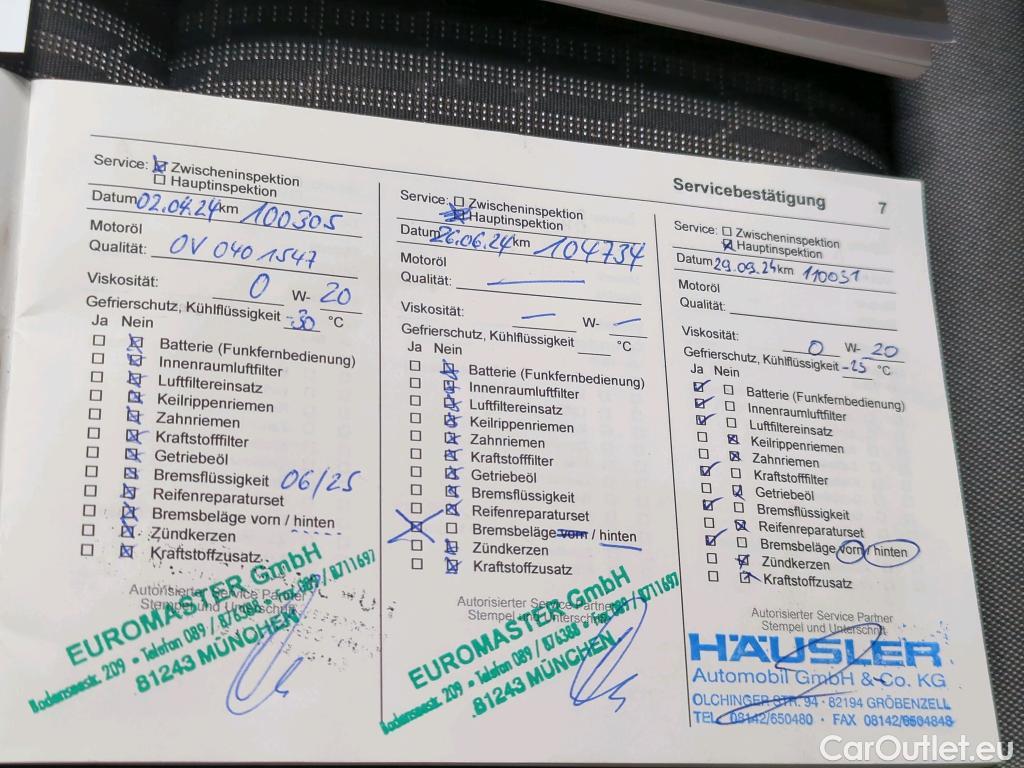 Servicebestätigung 7
Service: Zwischeninspektion
Hauptinspektion
Datum 02.04.24 km 100305
Motoröl
Qualität: OV 040 1547
Viskosität: 0 W- 20
Gefrierschutz, Kühlflüssigkeit -30 °C
Ja Nein
Batterie (Funkfernbedienung)
Innenraumluftfilter
Luftfiltereinsatz
Keilrippenriemen
Zahnriemen
Kraftstofffilter
Getriebeöl
Bremsflüssigkeit 06/25
Reifenreparaturset
Bremsbeläge vorn / hinten
Zündkerzen
Kraftstoffzusatz
Autorisierter Service Partner
Stempel und Unterschrift
EUROMASTER GmbH
Bodenseestr. 209 • Telefon 089 / 876388 • Fax 089 / 8711697
81243 MÜNCHEN
Service: Zwischeninspektion
Hauptinspektion
Datum 26.06.24 km 104734
Motoröl
Qualität:
Viskosität: — W- —
Gefrierschutz, Kühlflüssigkeit °C
Ja Nein
Batterie (Funkfernbedienung)
Innenraumluftfilter
Luftfiltereinsatz
Keilrippenriemen
Zahnriemen
Kraftstofffilter
Getriebeöl
Bremsflüssigkeit
Reifenreparaturset
Bremsbeläge vorn / hinten
Zündkerzen
Kraftstoffzusatz
Autorisierter Service Partner
Stempel und Unterschrift
EUROMASTER GmbH
Bodenseestr. 209 • Telefon 089 / 876388 • Fax 089 / 8711697
81243 MÜNCHEN
Service: Zwischeninspektion
Hauptinspektion
Datum 29.09.24 km 110051
Motoröl
Qualität:
Viskosität: 0 W- 20
Gefrierschutz, Kühlflüssigkeit -25 °C
Ja Nein
Batterie (Funkfernbedienung)
Innenraumluftfilter
Luftfiltereinsatz
Keilrippenriemen
Zahnriemen
Kraftstofffilter
Getriebeöl
Bremsflüssigkeit
Reifenreparaturset
Bremsbeläge vorn / hinten
Zündkerzen
Kraftstoffzusatz
Autorisierter Service Partner
Stempel und Unterschrift
HÄUSLER
Automobil GmbH & Co. KG
OLCHINGER STR. 94 · 82194 GRÖBENZELL
TEL. 08142/650480 · FAX 08142/6504848
CarOutlet.eu